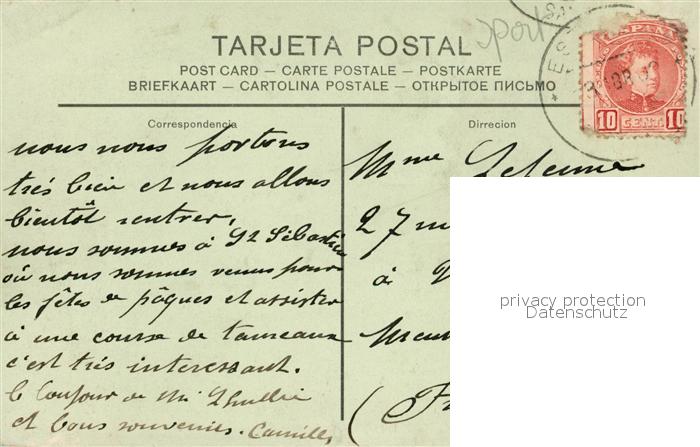 TARJETA POSTAL
POST CARD — CARTE POSTALE — POSTKARTE
BRIEFKAART — CARTOLINA POSTALE — ОТКРЫТОЕ ПИСЬМО
Correspondencia
nous nous portons
très bien et nous allons
bientôt rentrer,
nous sommes à St Sébastien
où nous sommes venus pour
les fêtes de pâques et assister
à une course de taureaux
c'est très interessant.
le bonjour de
et bons souvenirs. Camille
Dirrecion
Mme Lejeune
27
à
(
ESPAÑA
10 CENT. 10
privacy protection
Datenschutz